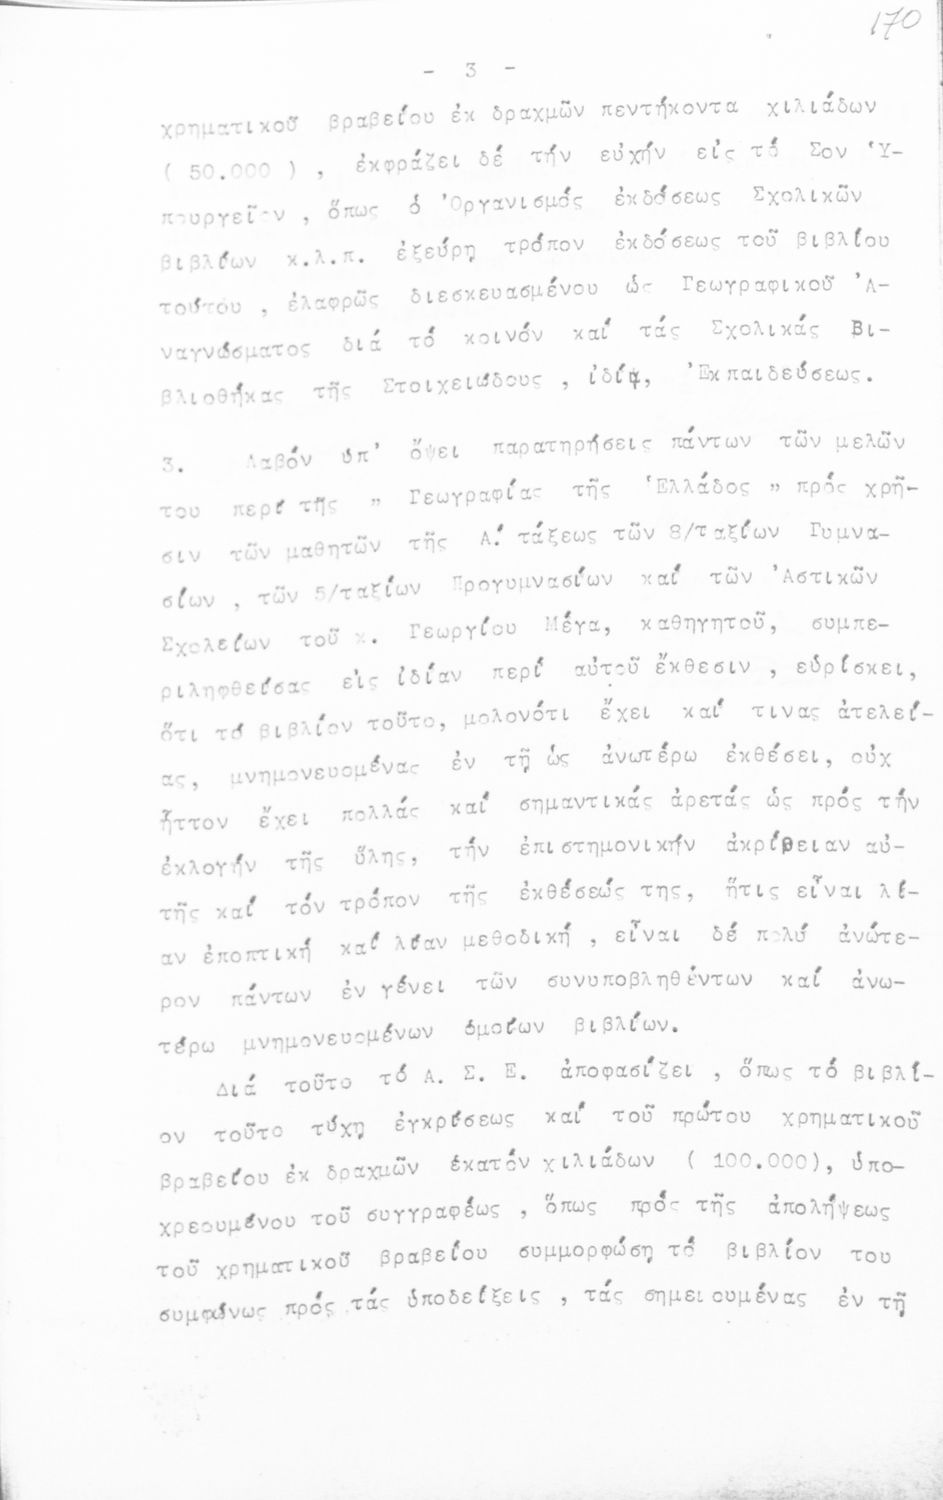 170
- 3 -
χρηματικοῦ βραβείου ἐκ δραχμῶν πεντήκοντα χιλιάδων
( 50.000 ) , ἐκφράζει δέ τήν εὐχήν εἰς τό Σον Ὑ-
πουργεῖον , ὅπως ὁ Ὀργανισμός ἐκδόσεως Σχολικῶν
βιβλίων κ.λ.π. ἐξεύρῃ τρόπον ἐκδόσεως τοῦ βιβλίου
τούτου , ἐλαφρῶς διεσκευασμένου ὡς Γεωγραφικοῦ Ἀ-
ναγνώσματος διά τό κοινόν καί τάς Σχολικάς Βι-
βλιοθήκας τῆς Στοιχειώδους , ἰδίᾳ, Ἐκπαιδεύσεως.
3. Λαβόν ὑπ' ὄψει παρατηρήσεις πάντων τῶν μελῶν
του περί τῆς " Γεωγραφίας τῆς Ἑλλάδος " πρός χρῆ-
σιν τῶν μαθητῶν τῆς Α΄. τάξεως τῶν 8/ταξίων Γυμνα-
σίων , τῶν 5/ταξίων Προγυμνασίων καί τῶν Ἀστικῶν
Σχολείων τοῦ κ. Γεωργίου Μέγα, καθηγητοῦ, συμπε-
ριληφθείσας εἰς ἰδίαν περί αὐτοῦ ἔκθεσιν , εὑρίσκει,
ὅτι τό βιβλίον τοῦτο, μολονότι ἔχει καί τινας ἀτελεί-
ας, μνημονευομένας ἐν τῇ ὡς ἀνωτέρω ἐκθέσει, οὐχ
ἧττον ἔχει πολλάς καί σημαντικάς ἀρετάς ὡς πρός τήν
ἐκλογήν τῆς ὕλης, τήν ἐπιστημονικήν ἀκρίβειαν αὐ-
τῆς καί τόν τρόπον τῆς ἐκθέσεώς της, ἥτις εἶναι λί-
αν ἐποπτική καί λίαν μεθοδική , εἶναι δέ πολύ ἀνώτε-
ρον πάντων ἐν γένει τῶν συνυποβληθέντων καί ἀνω-
τέρω μνημονευομένων ὁμοίων βιβλίων.
Διά τοῦτο τό Α. Σ. Ε. ἀποφασίζει , ὅπως τό βιβλί-
ον τοῦτο τύχῃ ἐγκρίσεως καί τοῦ πρώτου χρηματικοῦ
βραβείου ἐκ δραχμῶν ἑκατόν χιλιάδων ( 100.000), ὑπο-
χρεουμένου τοῦ συγγραφέως , ὅπως πρός τῆς ἀπολήψεως
τοῦ χρηματικοῦ βραβείου συμμορφώσῃ τό βιβλίον του
συμφώνως πρός τάς ὑποδείξεις , τάς σημειουμένας ἐν τῇ